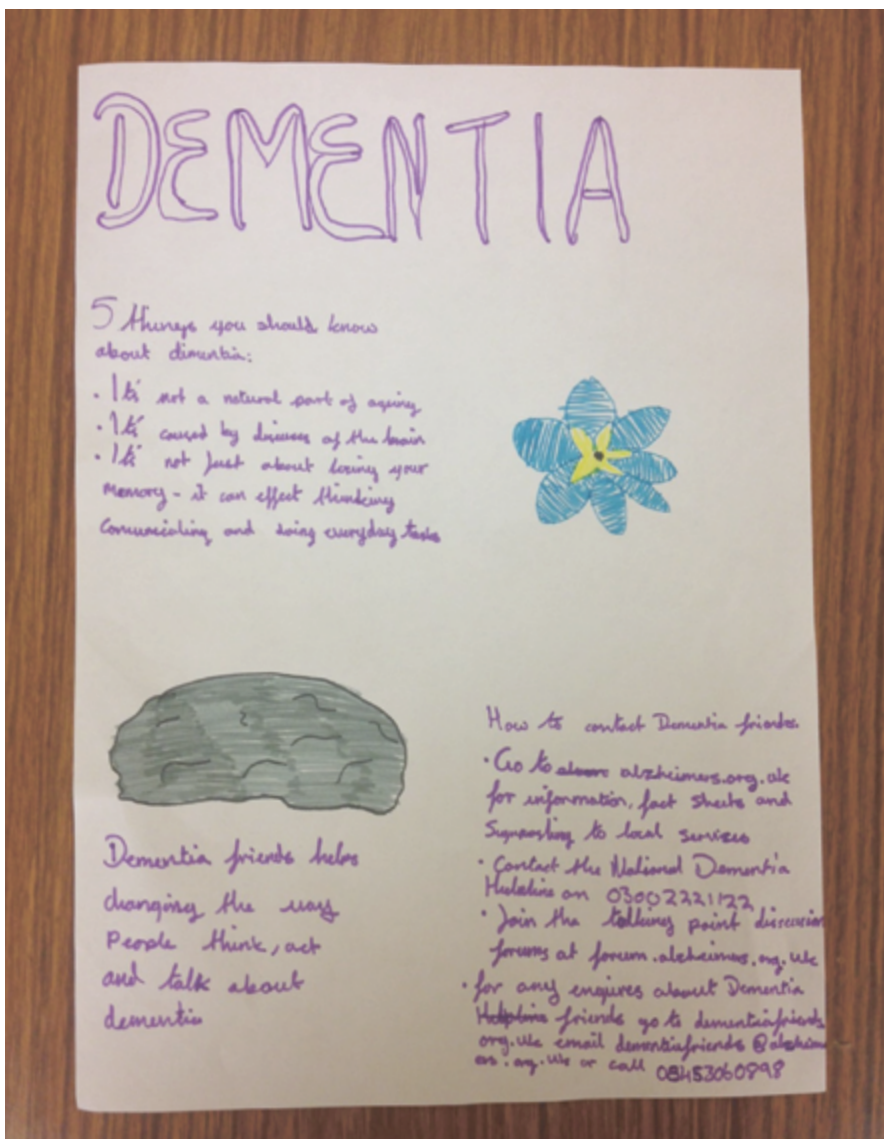 DEMENTIA
5 things you should know
about dimentia:
• It's not a natural part of ageing
• It's caused by diseases of the brain
• It's not just about losing your
memory - it can effect thinking
Comunicating and doing everyday tasks
Dementia friends helps
changing the way
People think, act
and talk about
dementia
How to contact Dementia friends
• Go to alzheimers.org.uk
for information, fact sheets and
Signposting to local services
• Contact the National Dementia
Helpline on 03002221122
• Join the talking point discussion
forums at forum.alzheimers.org.uk
• for any enquires about Dementia
Helpline friends go to dementiafriends
org.uk email dementiafriends@alzheim
ers.org.uk or call 08453060898